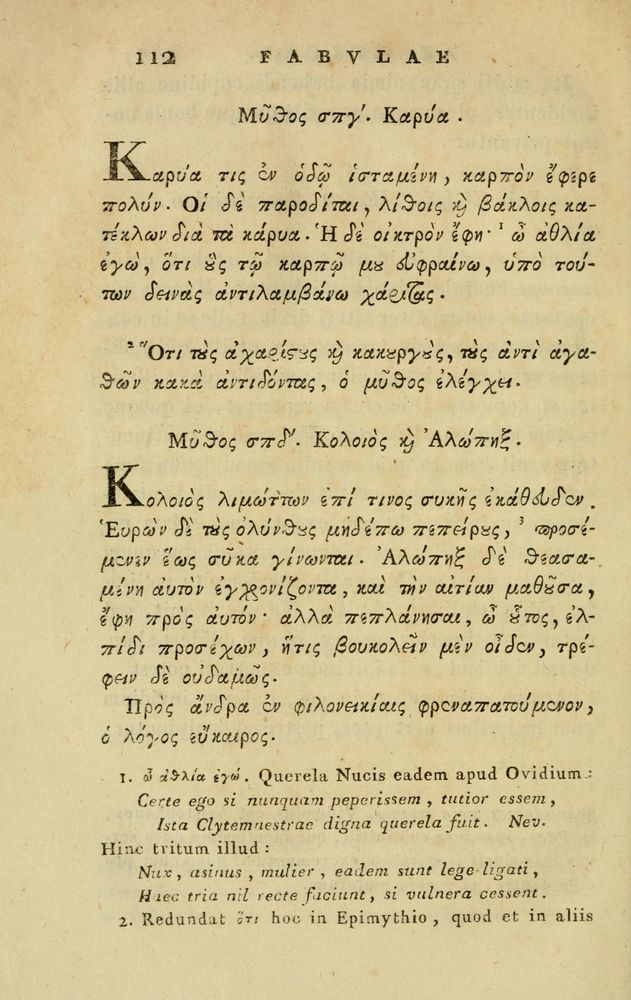 112 FABVLAE
Μῦθος σπγ'. Καρύα.
Καρύα τις ἐν ὁδῷ ἱσταμένη, καρπὸν ἔφερε
πολύν. Οἱ δὲ παροδίται, λίθοις καὶ βάκλοις κα-
τέκλων διὰ τὰ κάρυα. Ἡ δὲ οἰκτρὸν ἔφη· ¹ ὦ ἀθλία
ἐγὼ, ὅτι οὓς τῷ καρπῷ μου εὐφραίνω, ὑπὸ τού-
των δεινὰς ἀντιλαμβάνω χάριτας.
² Ὅτι τοὺς ἀχαρίστους καὶ κακούργους, τοὺς ἀντὶ ἀγα-
θῶν κακὰ ἀντιδόντας, ὁ μῦθος ἐλέγχει.
Μῦθος σπδ'. Κολοιὸς καὶ Ἀλώπηξ.
Κολοιὸς λιμώττων ἐπί τινος συκῆς ἐκάθευδεν.
Ἑυρὼν δὲ τοὺς ὀλύνθους μηδέπω πεπείρους, ³ προσέ-
μενεν ἕως σῦκα γίνωνται. Ἀλώπηξ δὲ θεασα-
μένη αὐτὸν ἐγχρονίζοντα, καὶ τὴν αἰτίαν μαθοῦσα,
ἔφη πρὸς αὐτόν· ἀλλὰ πεπλάνησαι, ὦ οὗτος, ἐλ-
πίδι προσέχων, ἥτις βουκολεῖν μὲν οἶδεν, τρέ-
φειν δὲ οὐδαμῶς.
Πρὸς ἄνδρα ἐν φιλονεικίαις φρεναπατούμενον,
ὁ λόγος εὔκαιρος.
1. ὦ ἀθλία ἐγώ. Querela Nucis eadem apud Ovidium:
Certe ego si nunquam peperissem, tutior essem,
Ista Clytemnestrae digna querela fuit. Nev.
Hinc tritum illud:
Nux, asinus, mulier, eadem sunt lege ligati,
Haec tria nil recte faciunt, si vulnera cessent.
2. Redundat ὅτι hoc in Epimythio, quod et in aliis